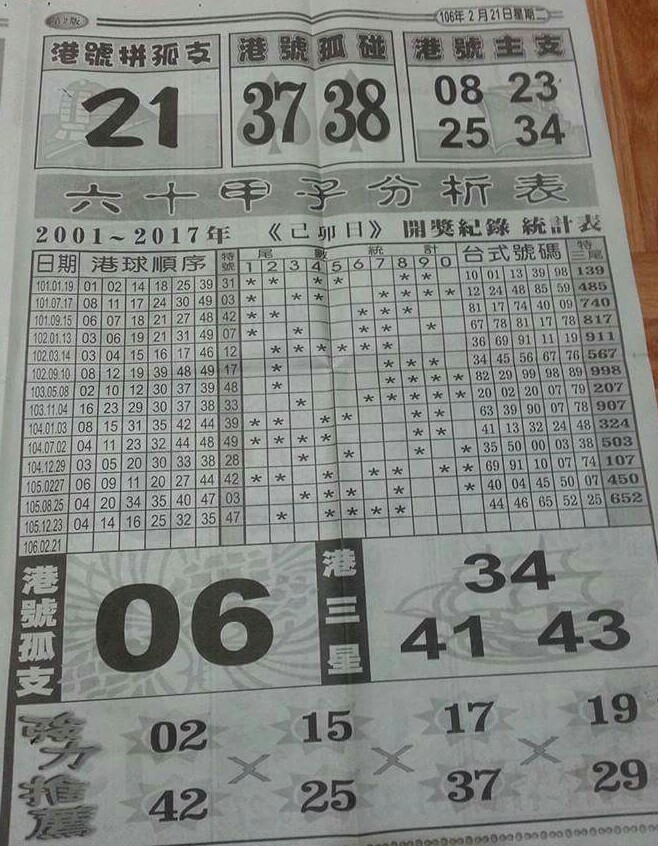 第2版
106年2月21日星期二
港號拼孤支 港號孤碰 港號主支
21 37 38 08 23
25 34
六十甲子分析表
2001~2017年 《己卯日》 開獎紀錄 統計表
日期 港球順序 特號 尾數統計 台式號碼 特三尾
1 2 3 4 5 6 7 8 9 0
101.01.19 01 02 14 18 25 39 31 * * * * * * 10 01 13 39 98 139
101.07.17 08 11 17 24 30 49 03 * * * * * * * 12 24 48 85 59 485
101.09.15 06 07 18 21 27 48 42 * * * * * 81 17 74 40 09 740
102.01.13 03 06 19 21 31 49 07 * * * * * 67 78 81 17 78 817
102.03.14 03 04 15 16 17 46 12 * * * * * * 36 69 91 11 19 911
102.09.10 08 12 19 39 48 49 17 * * * * 34 45 56 67 76 567
103.05.08 02 10 12 30 37 39 48 * * * * * 82 29 99 98 89 998
103.11.04 16 23 29 30 37 38 33 * * * * * * 20 02 20 07 79 207
104.01.03 08 15 31 35 42 44 39 * * * * * * 63 39 90 07 78 907
104.07.02 04 11 23 32 44 48 49 * * * * * * 41 13 32 24 48 324
104.12.29 03 05 20 30 33 38 28 * * * * 35 50 00 03 38 503
105.0227 06 09 11 20 27 44 42 * * * * * * * 69 91 10 07 74 107
105.08.25 04 20 34 35 40 47 03 * * * * * 40 04 45 50 07 450
105.12.23 04 14 16 25 32 35 47 * * * * * 44 46 65 52 25 652
106.02.21
港號孤支 06 港三星 34
41 43
強力推薦 02 15 17 19
× × ×
42 25 37 29